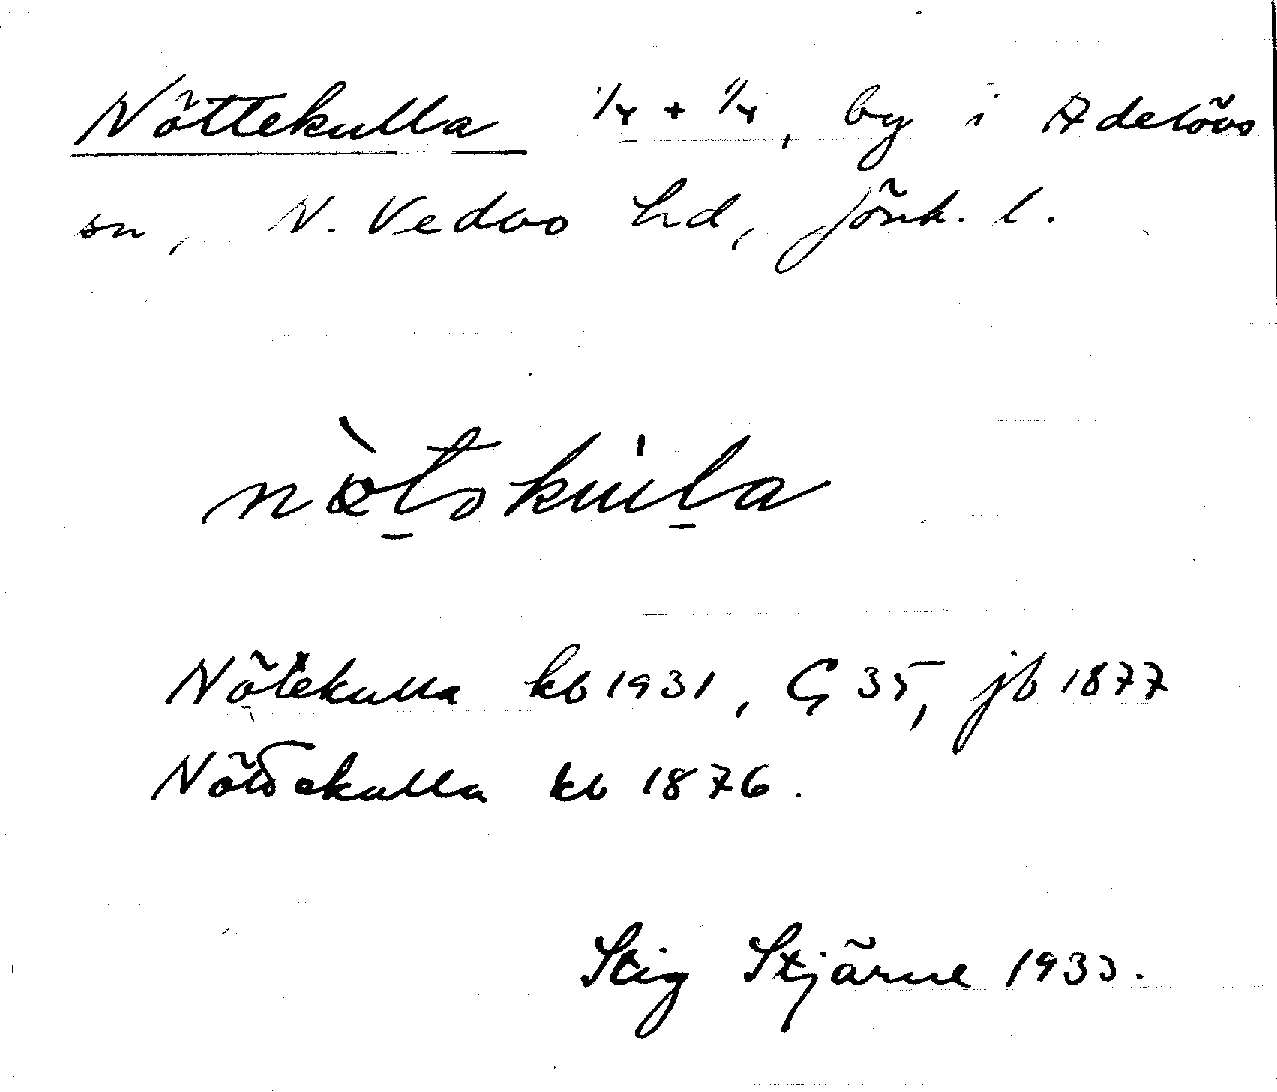 Nöttekulla 1/4 + 1/4, by i Adelövs
sn, N. Vedbo hd, Jönk. l.
Nötekulla kb 1931, G 35, jb 1877
kb 1876.
Stig Stjärne 1933.